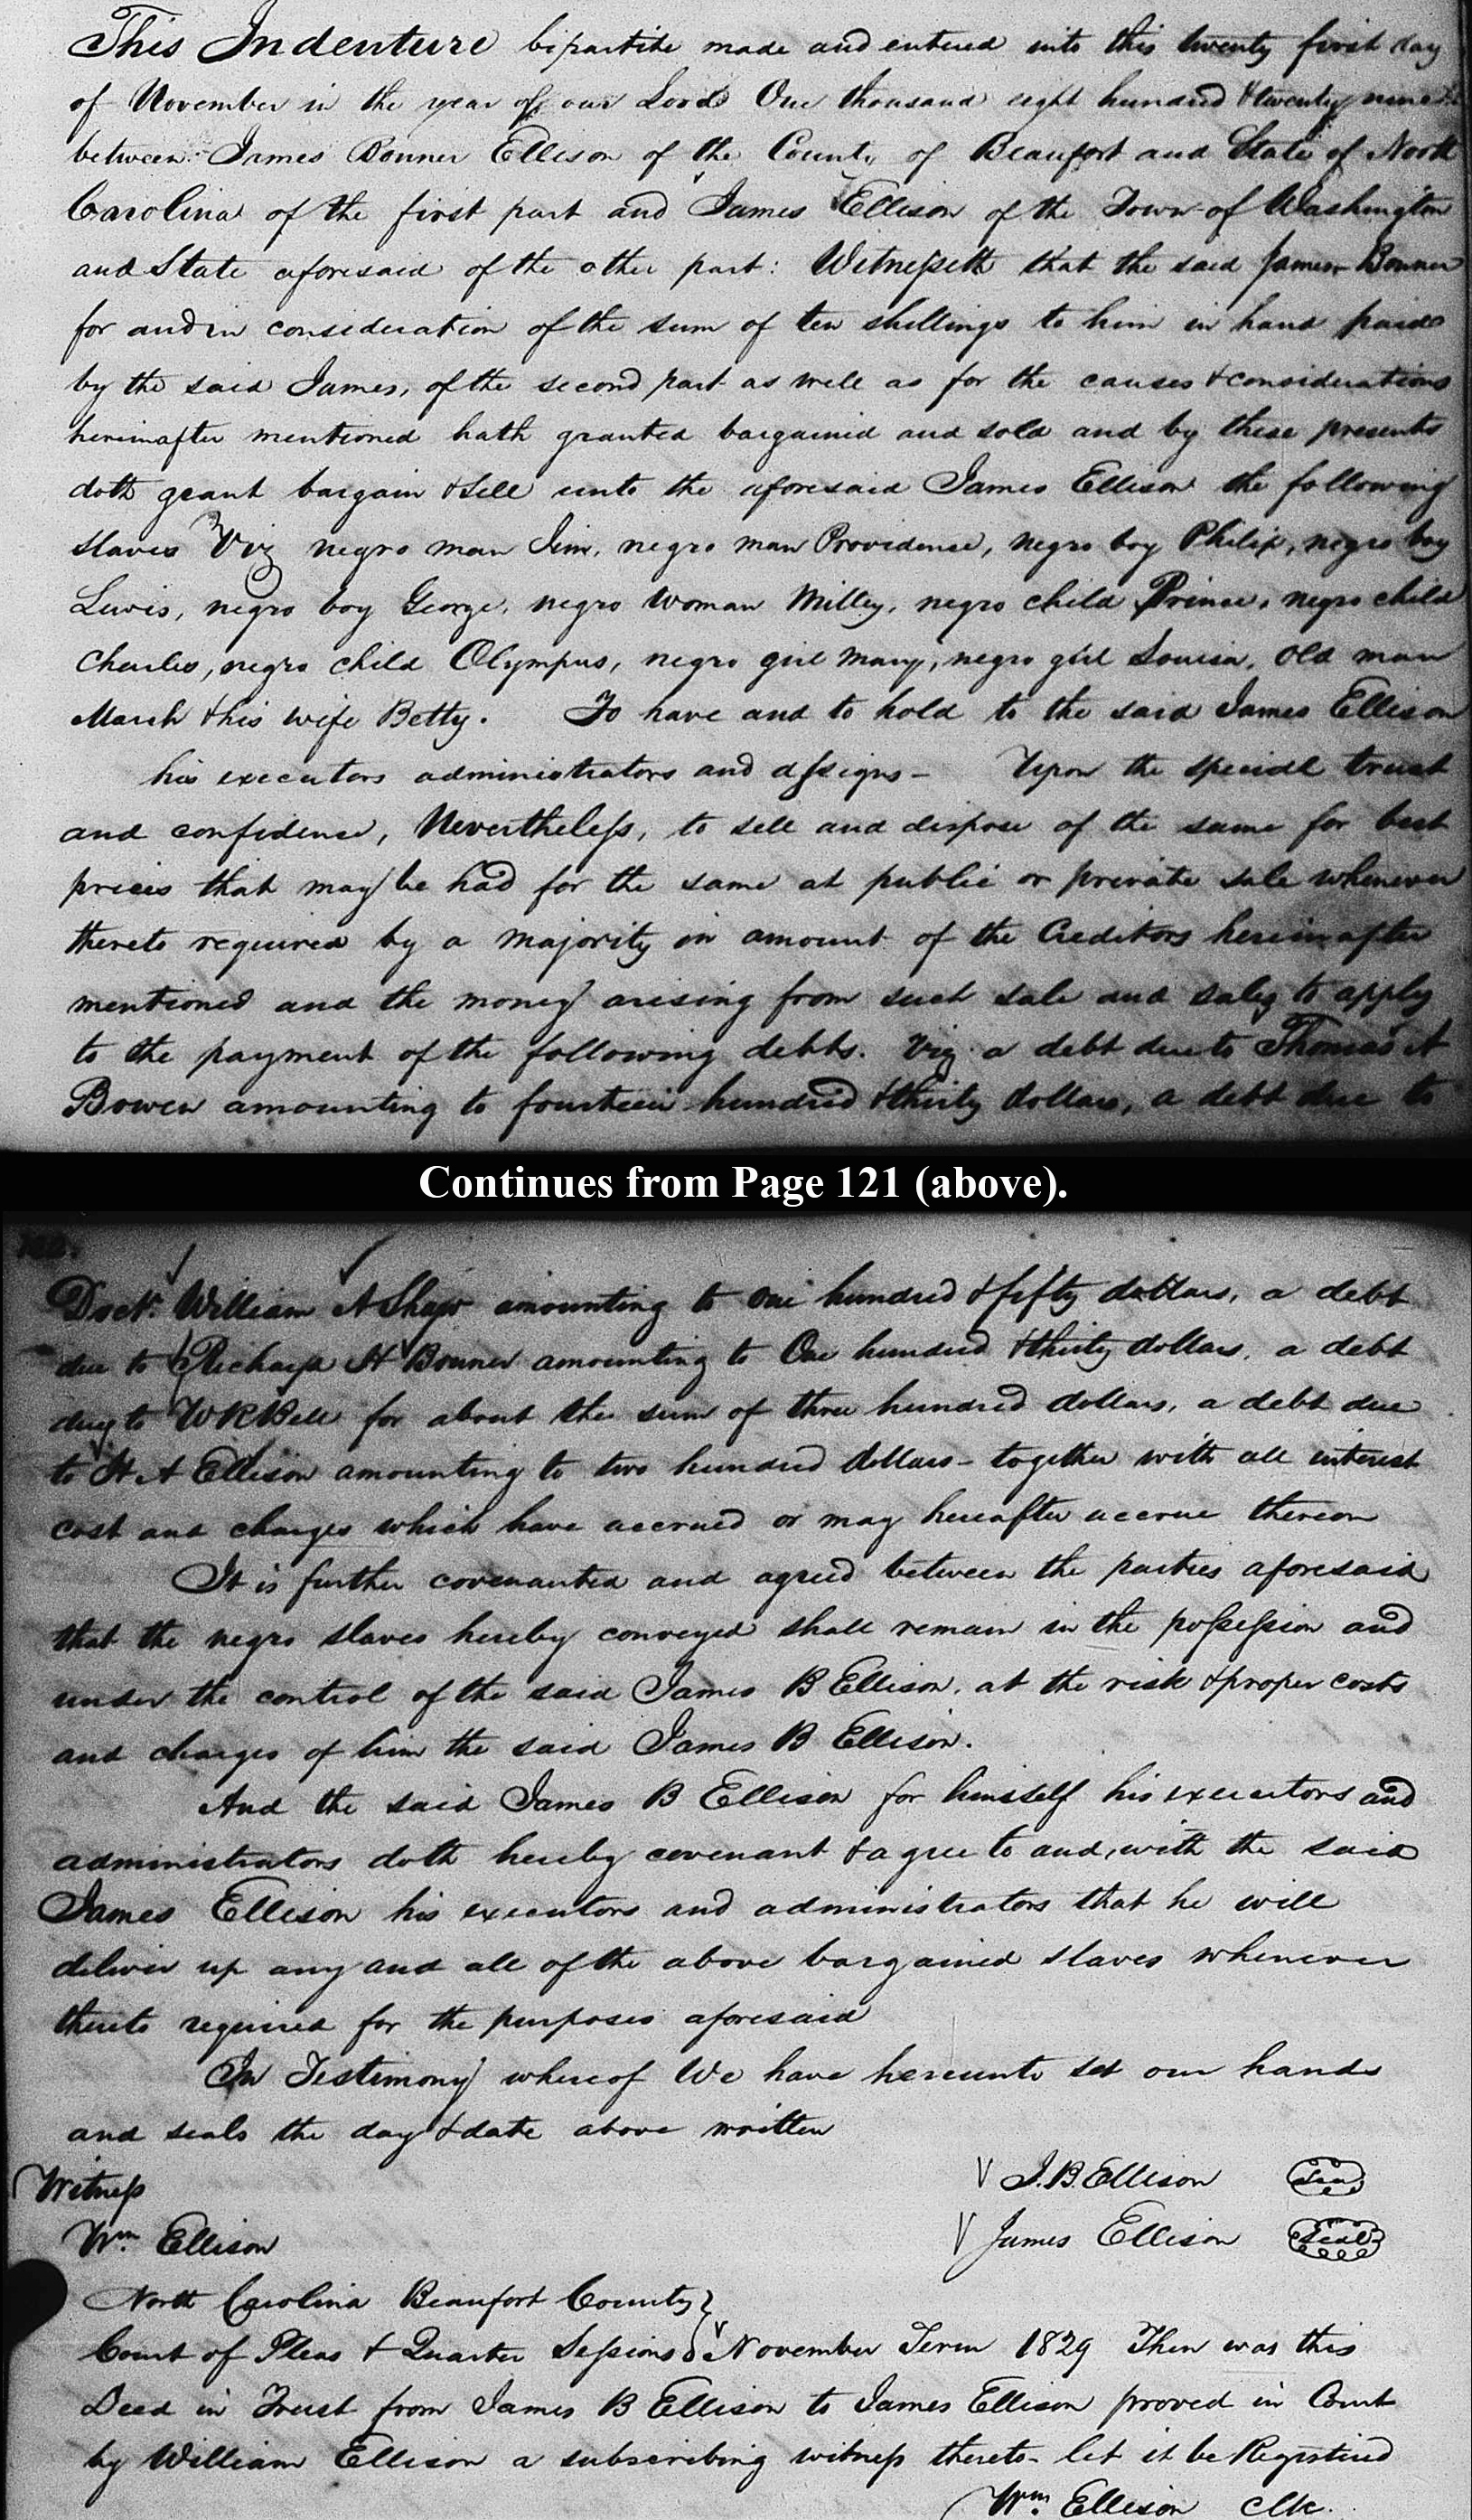 This Indenture bipartite made and entered into this twenty first day
of November in the year of our Lord One thousand eight hundred & twenty nine
between James Bonner Ellison of the County of Beaufort and State of North
Carolina of the first part and James Ellison of the Town of Washington
and State aforesaid of the other part: Witnesseth that the said James Bonner
for and in consideration of the sum of ten shillings to him in hand paid
by the said James, of the second part as well as for the causes & considerations
hereinafter mentioned hath granted bargained and sold and by these presents
doth grant bargain & sell unto the aforesaid James Ellison the following
slaves Viz negro man Jim, negro man Providence, negro boy Philip, negro boy
Lewis, negro boy George, negro woman Milley, negro child Prince, negro child
Charles, negro child Olympus, negro girl Mary, negro girl Louisa, Old man
March & his wife Betty. To have and to hold to the said James Ellison
his executors administrators and assigns - Upon the special trust
and confidence, Nevertheless, to sell and dispose of the same for best
prices that may be had for the same at public or private sale whenever
thereto required by a majority in amount of the Creditors hereinafter
mentioned and the money arising from such sale and sales to apply
to the payment of the following debts. Viz a debt due to Thomas A
Bowen amounting to fourteen hundred & thirty dollars, a debt due to
Continues from Page 121 (above).
Doctr. William A Shaw amounting to One hundred & fifty dollars, a debt
due to Richard H Bonner amounting to One hundred & thirty dollars, a debt
due to W R Bell for about the sum of three hundred dollars, a debt due
to H A Ellison amounting to two hundred dollars - together with all interest
cost and charges which have accrued or may hereafter accrue thereon
It is further covenanted and agreed between the parties aforesaid
that the negro slaves hereby conveyed shall remain in the possession and
under the control of the said James B Ellison, at the risk & proper costs
and charges of him the said James B Ellison.
And the said James B Ellison for himself his executors and
administrators doth hereby covenant & agree to and, with the said
James Ellison his executors and administrators that he will
deliver up any and all of the above bargained slaves whenever
thereto required for the purposes aforesaid
In Testimony whereof We have hereunto set our hands
and seals the day & date above written
Witness J. B. Ellison Seal
Wm. Ellison James Ellison Seal
North Carolina Beaufort County
Court of Pleas & Quarter Sessions November Term 1829 Then was this
Deed in Trust from James B Ellison to James Ellison proved in Court
by William Ellison a subscribing witness thereto - let it be Registered
Wm. Ellison Clk.